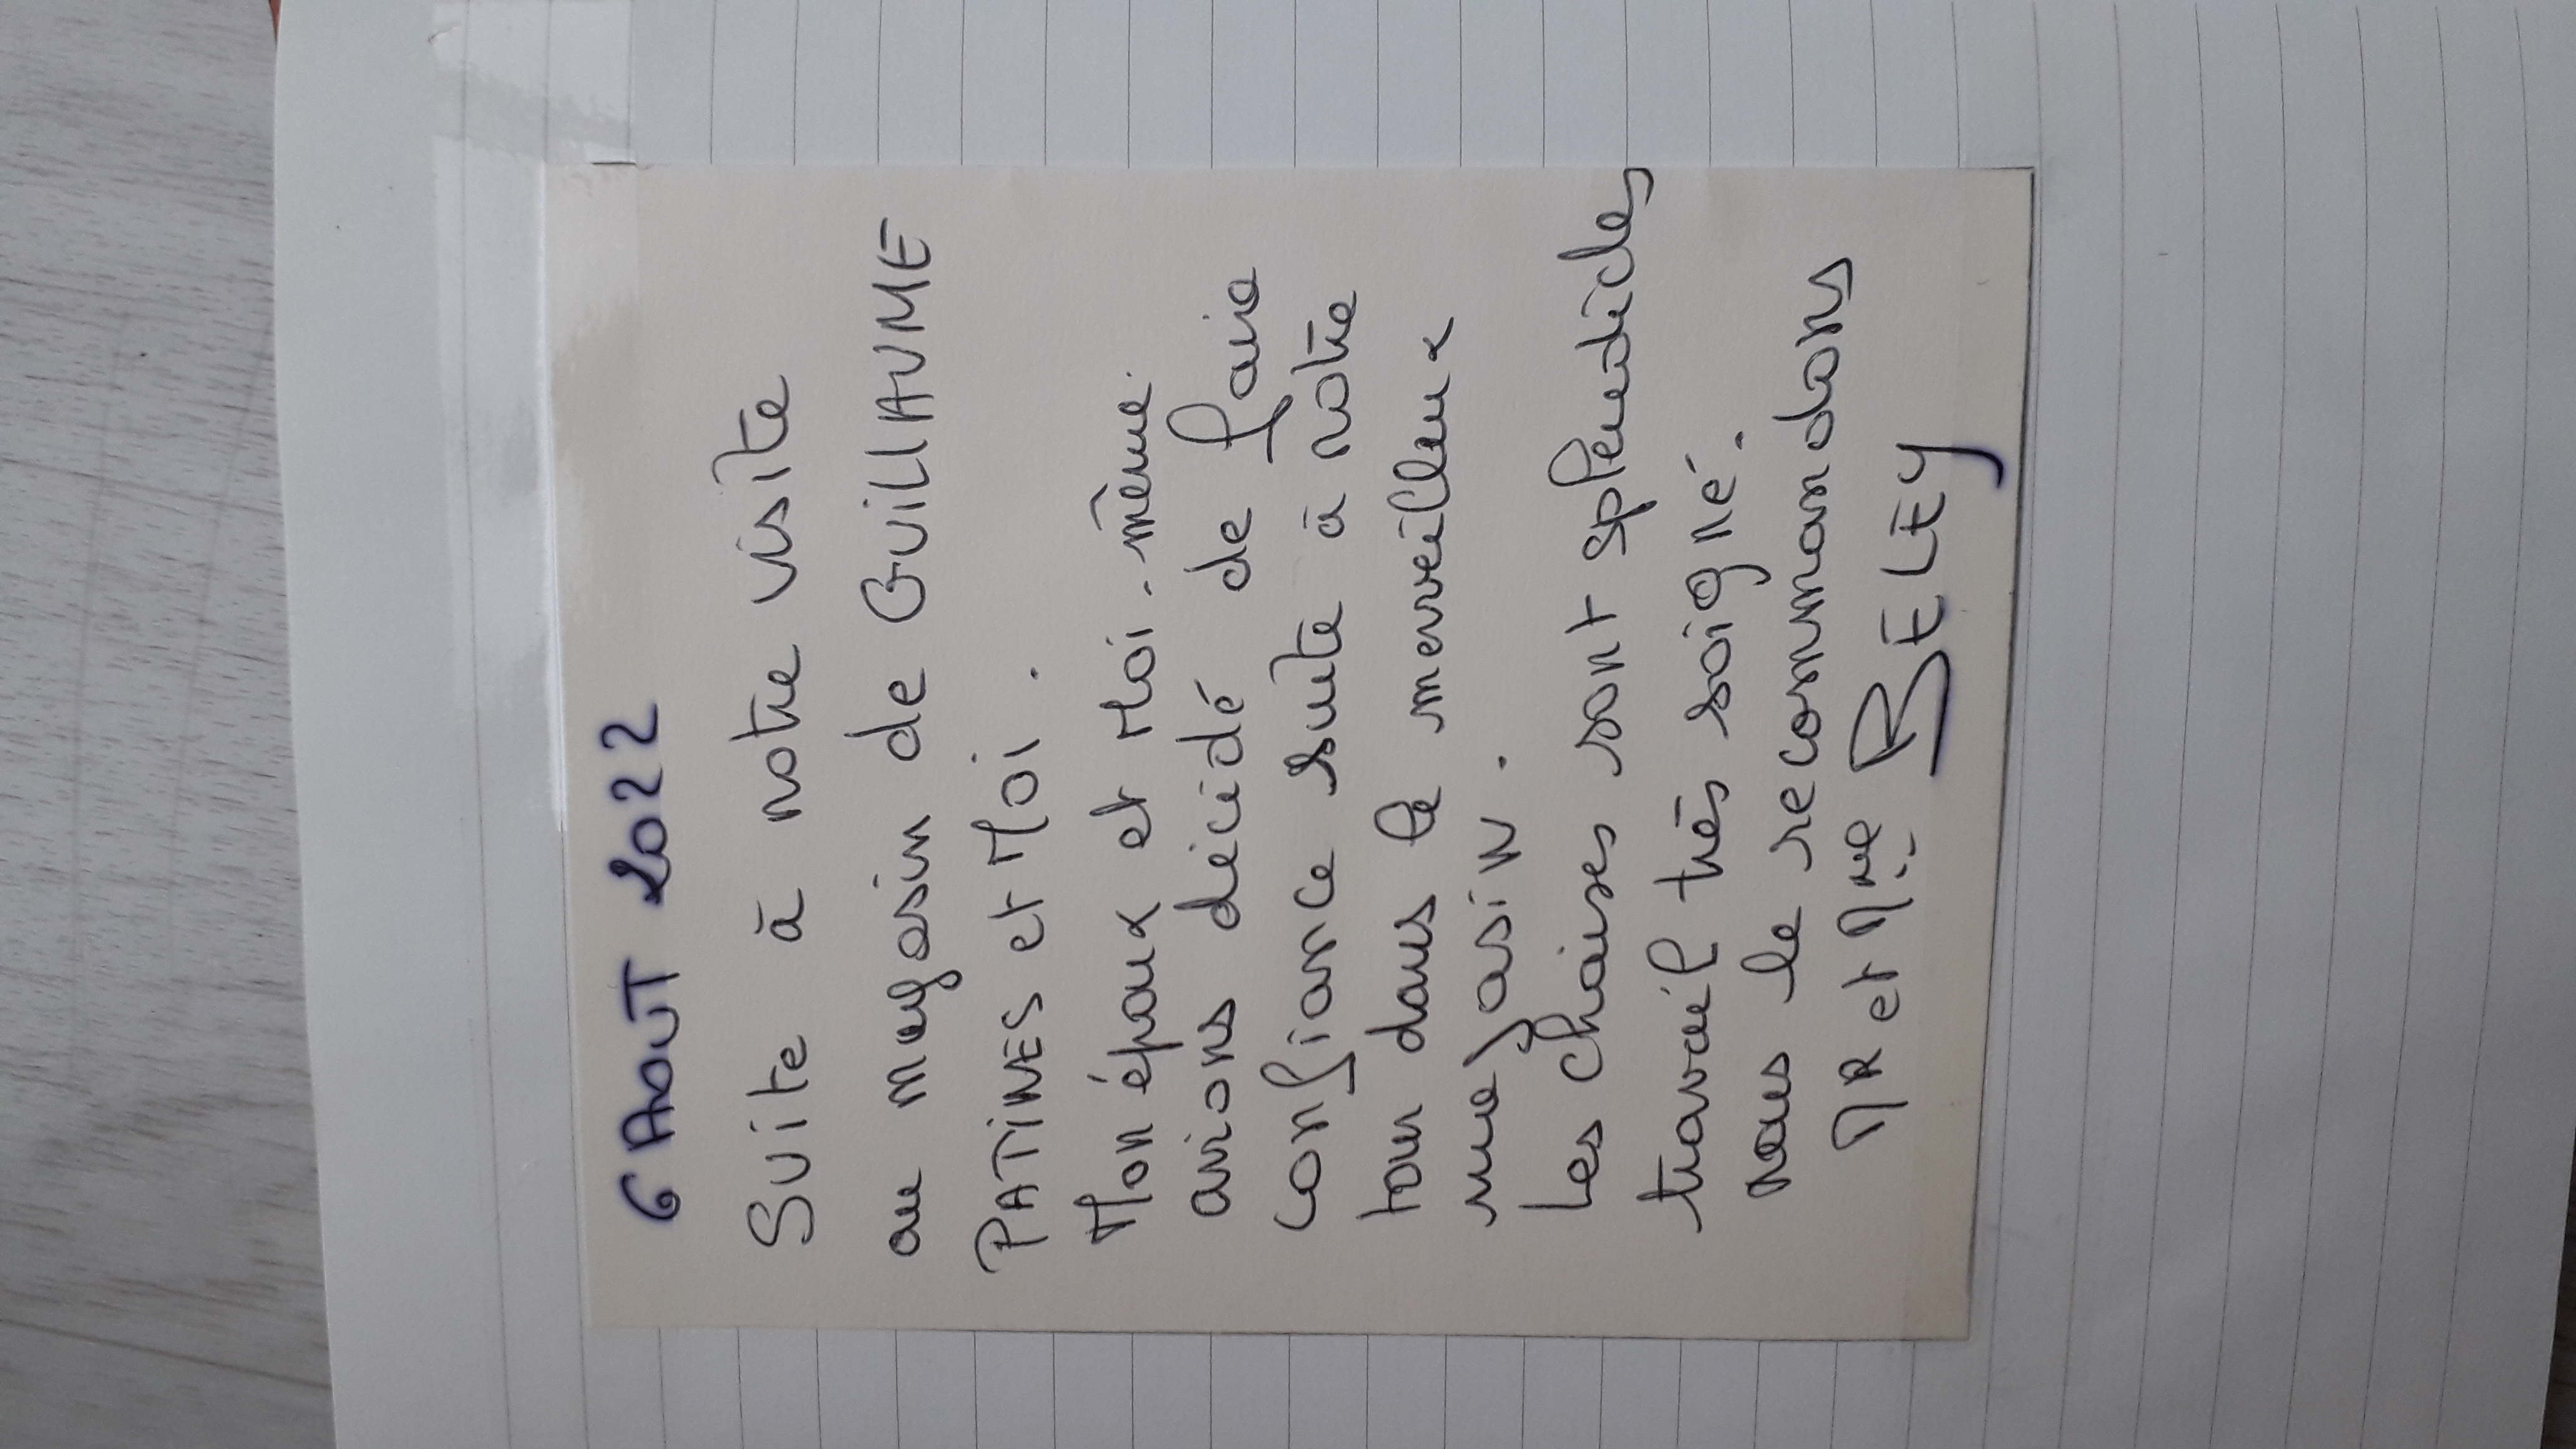 6 AOUT 2022
Suite à notre visite
au magasin de GUILLAUME
PATINES et Moi.
Mon époux et Moi-même
avions décidé de faire
confiance suite à notre
tour dans le merveilleux
magasin.
Les chaises sont splendides
travail très soigné.
nous le recommandons
MR et Mme BELEY